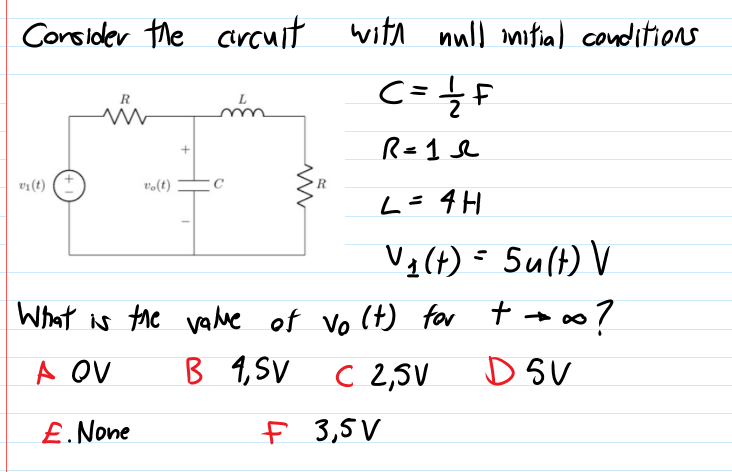 Consider the circuit with null initial conditions
C = 1/2 F
R = 1 Ω
L = 4H
V1(t) = 5u(t) V
R
L
+
v1(t)
+
−
vo(t)
C
R
−
What is the value of vo(t) for t → ∞?
A 0V B 4,5V C 2,5V D 5V
E. None F 3,5V